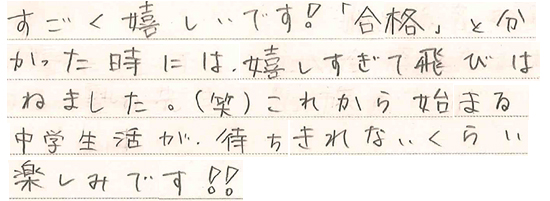 すごく嬉しいです!「合格」と分
かった時には、嬉しすぎて飛びは
ねました。(笑)これから始まる
中学生活が、待ちきれないくらい
楽しみです!!